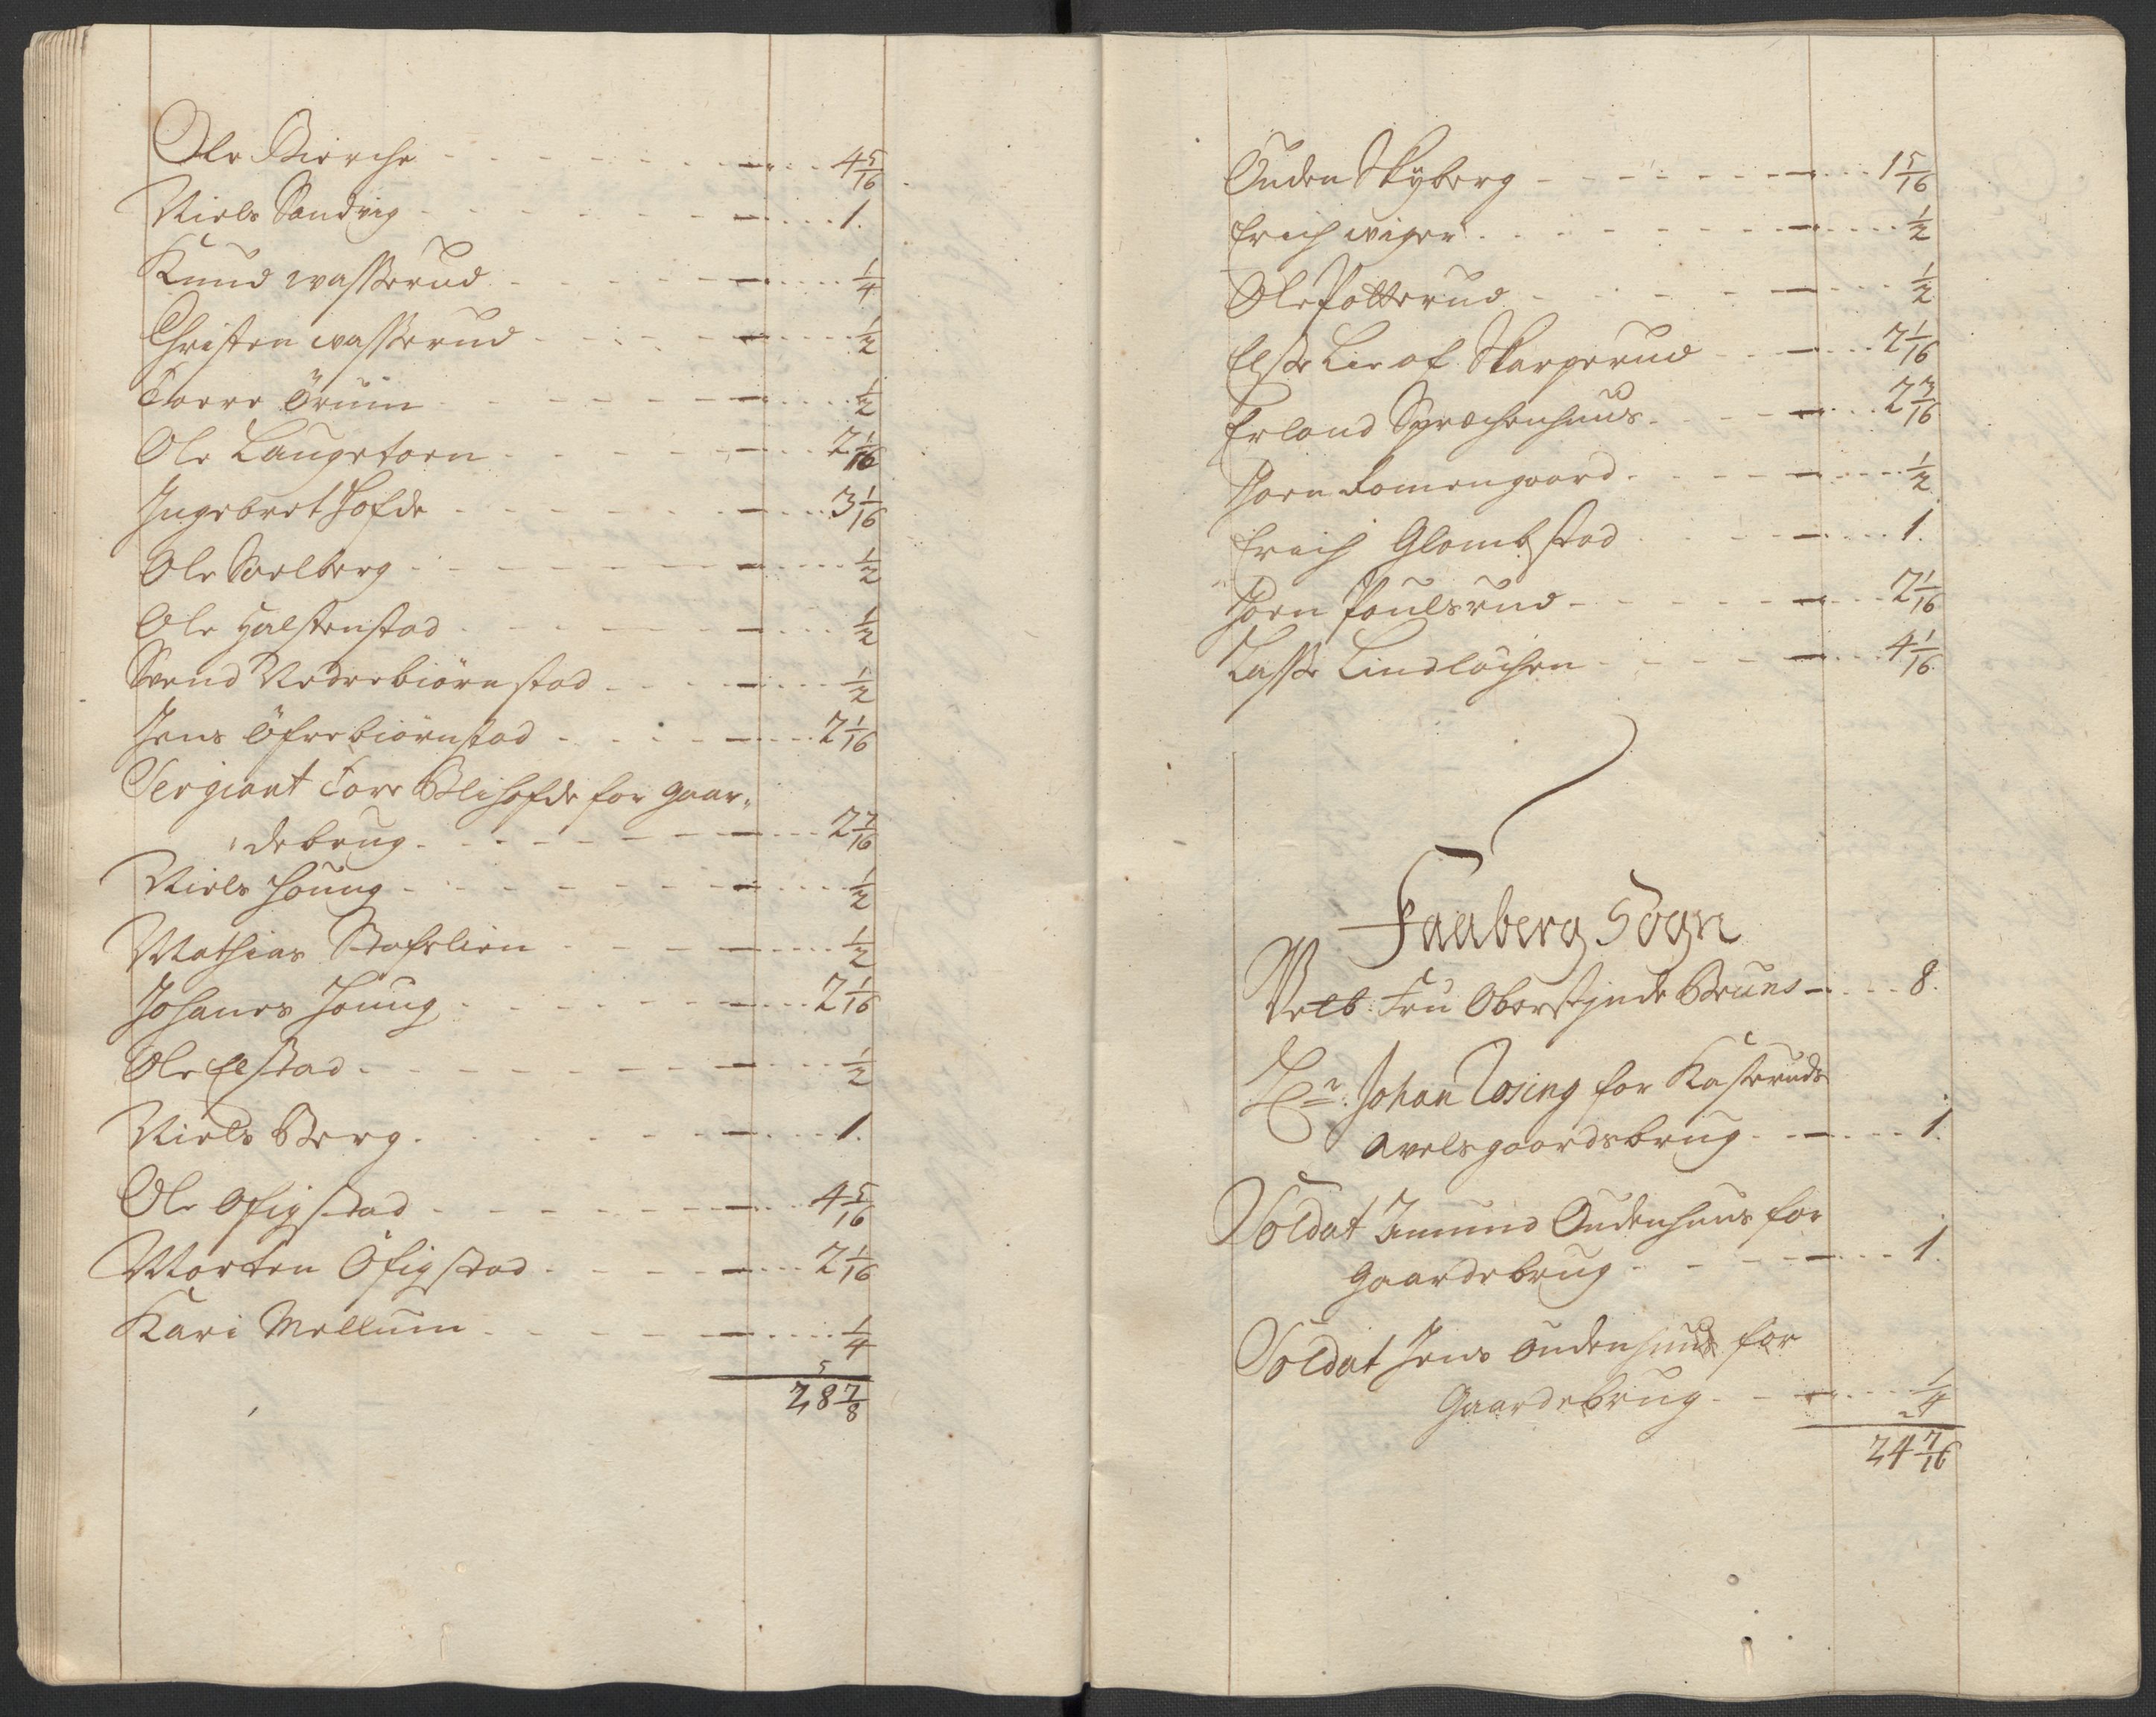 Ole Bierche - - - - - - - - 4 5/16
Niels Sandvig - - - - - - - 1.
Knud wasserud - - - - - - 1/4
Christen wasserud - - - - - 1/2
Torre Örum - - - - - - - 1/2
Ole Laugetorn - - - - - - 2 1/16
Ingebret Hofde - - - - - - 3 1/16
Ole Soelberg - - - - - - - 1/2
Ole Halstenstad - - - - - - 1/2
Svend Nedrebiörnstad - - - - 1/2
Jens Öfrebiörnstad - - - - 2 1/16
Sergiant Torr Blihofde for gaar„
„debrug - - - - - - - 2 7/16
Niels Houug - - - - - - - 1/2
Mathias Stafslien - - - - 1/2
Johanes Houug - - - - - - 2 1/16
Ole Elstad - - - - - - - 1/2
Niels Berg - - - - - - - 1.
Ole Ofigstad - - - - - - 4 5/16
Morten Öfigstad - - - - - 2 1/16
Kari Mellum - - - - - - 1/4
5
28 7/8
Ouden Skyberg - - - - - - - 1 5/16
Erich wiger - - - - - - - 1/2
Ole Potterud - - - - - - 1/2
Elsse Lie af Skargerud - - - 2 1/16
Erland Sprochenhuus - - - - 2 3/16
Joen Romengaard - - - - - 1/2
Erich Glombstad - - - - - 1.
Joen Poulsrud - - - - - - 2 1/16
Lasse Lindlöchen - - - - - 4 1/16
Faaberg Sogn
Velb: Fru Oberstinde Bruns - - - 8.
Hr: Johan Rosing for Kasseruds
Avelsgaardsbrug - - - - 1.
Soldat Imund Oudenhuus for
Gaardebrug - - - - - 1.
Soldat Jens Oudenhuus for
Gaardebrug - - - - 1/4
2
24 7/16